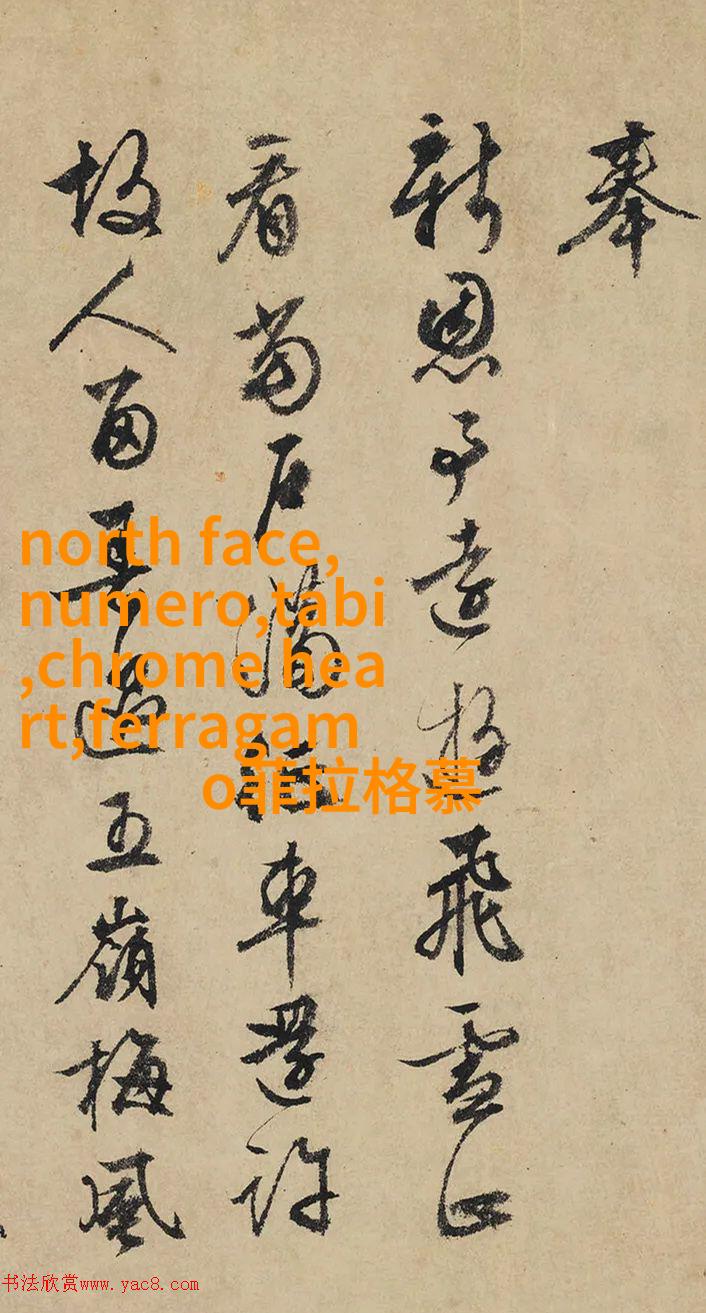 奉
新恩事遠遊飛雪正
看當戶滿車還許
故人留過五嶺梅風
north face,
numero,tabi
,chrome hea
rt,ferragam
o菲拉格慕
书法欣赏www.yac8.com